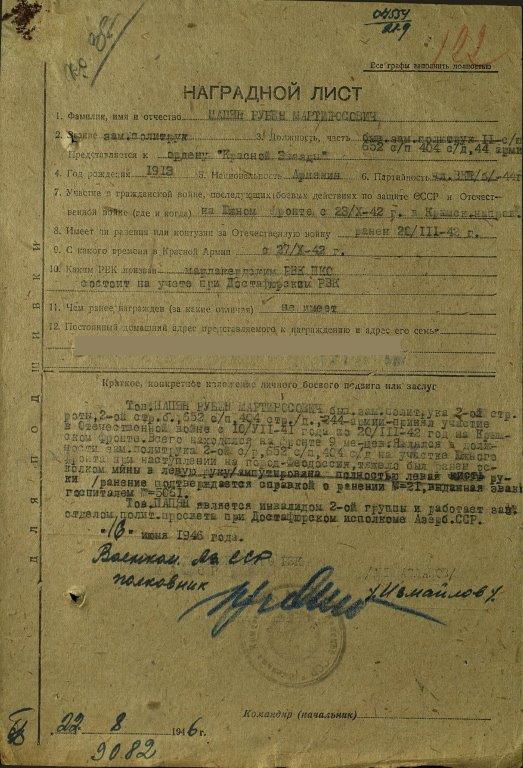 04554
102
Все графы выполнить полностью
НАГРАДНОЙ ЛИСТ
1. Фамилия, имя и отчество ПАПЯН РУБЕН МАРТИРОСОВИЧ
2. Звание зам.политрук 3. Должность, часть был.зам.политрук II с/р
652 с/п 404 с/д, 44 армии
Представляется к ордену "Красной Звезды"
4. Год рождения 1913 5. Национальность Армянин 6. Партийность
7. Участие в гражданской войне, последующих боевых действиях по защите СССР и Отечест-
венной войне (где и когда) на Южном Фронте с 23/X-42 г. в Крымск.напров.
8. Имеет ли ранения или контузии за Отечественную войну ранен 20/III-42 г.
9. С какого времени в Красной Армии с 27/X-42 г.
10. Каким РВК призван мардакертским РВК НКО
состоит на учете при Достафюрском РВК
11. Чем ранее награжден (за какие отличия) не имеет
12. Постоянный домашний адрес представляемого к награждению и адрес его семьи
Краткое, конкретное изложение личного боевого подвига или заслуг
Тов. ПАПЯН РУБЕН МАРТИРОСОВИЧ был.зам.политрука 2-ой стр.
роты, 2-ой стр.б., 652 с/п, 404 стр./д., 244 армии принял участие
в Отечественной войне с 10/VII-41 года по 20/III-42 год на Крым-
ском Фронте. Всего находился на Фронте 9 ме-цев. Являлся в долж-
ности зам.политрука 2-ой с/р, 652 с/п, 404 с/д на участке Южного
фронта при наступлении на город-Феодоссия, тяжело был ранен ос-
колком мины в левую руку/ампутирована полностью левая кисть ру-
ки /ранение подтверждается справкой о ранении №=21, выданная эвако
госпиталем №=5061.
Тов. ПАПЯН является инвалидом 2-ой группы и работает зав.
отделом полит.просвета при Достафюрском исполкоме Азерб.ССР.
"18" июня 1946 года.
Военком Аз ССР
полковник /Измайлов/
Командир (начальник)
22 8 1946 г.
9082
ДЛЯ ПОДШИВКИ